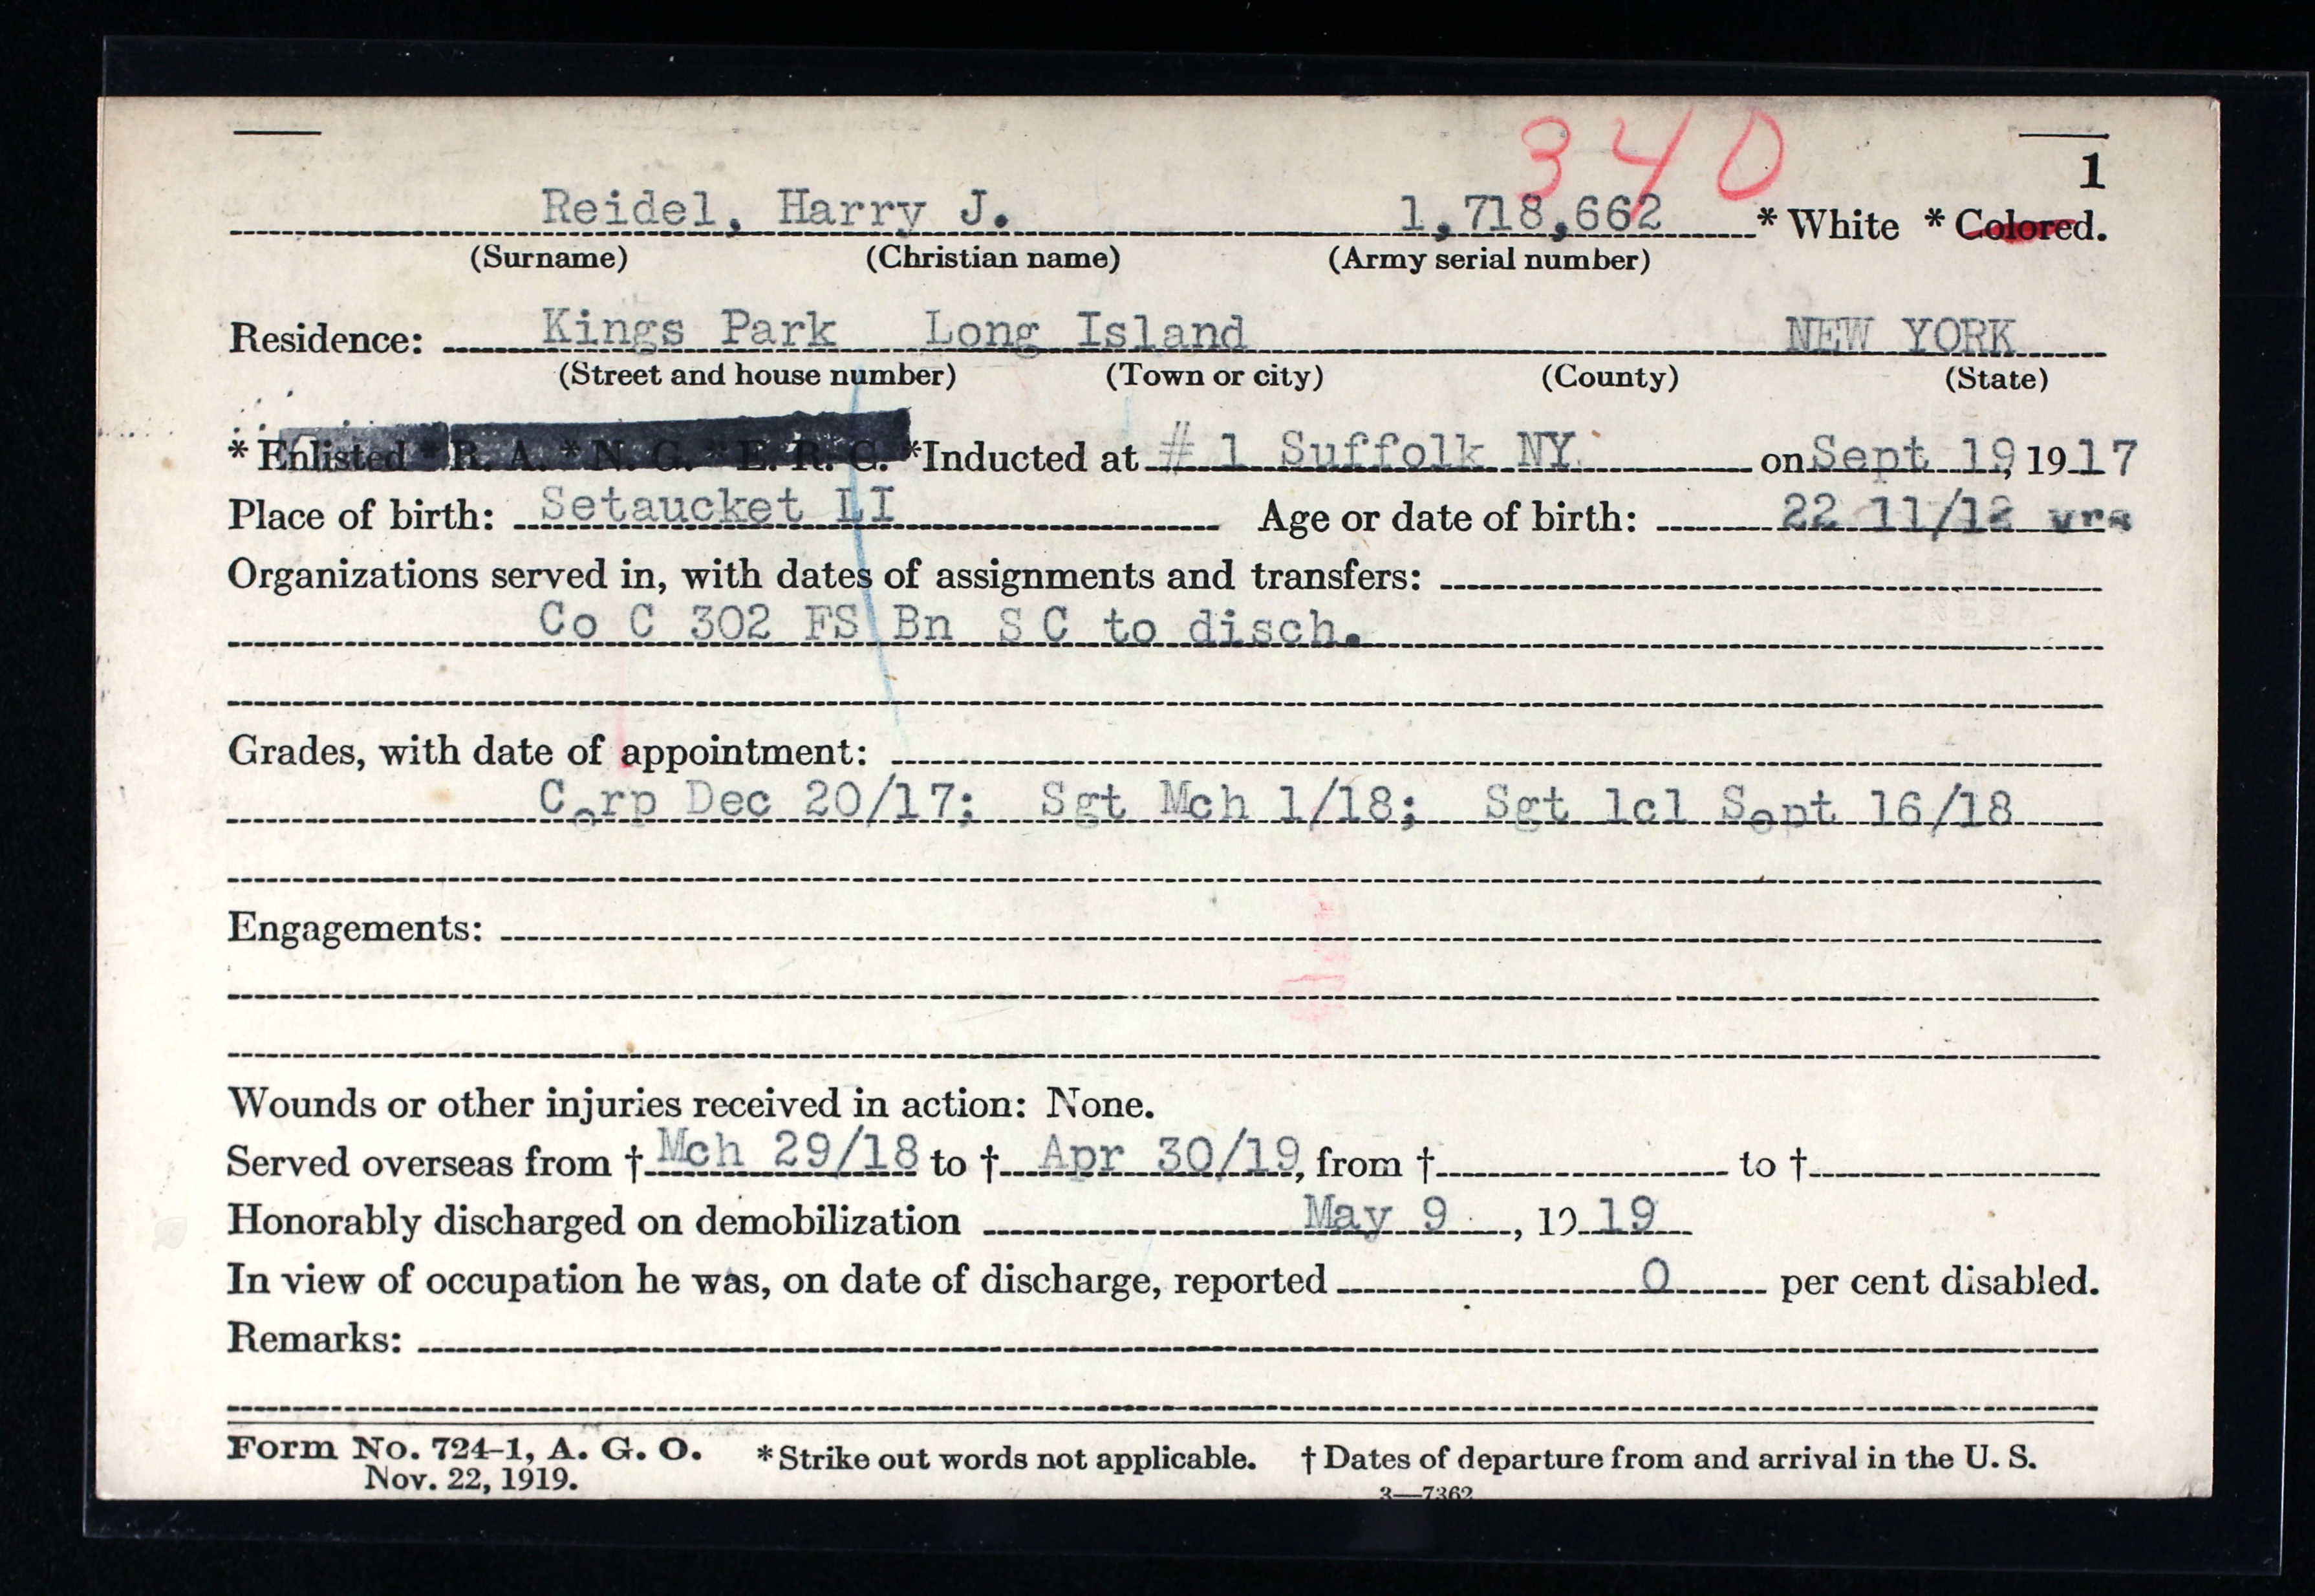 340
1
Reidel, Harry J. 1,718,662 * White * Colored.
(Surname) (Christian name) (Army serial number)
Residence: Kings Park Long Island NEW YORK
(Street and house number) (Town or city) (County) (State)
* Enlisted * R. A. * N. G. * E. R. C. *Inducted at # 1 Suffolk NY on Sept 19, 1917
Place of birth: Setaucket LI Age or date of birth: 22 11/12 yrs
Organizations served in, with dates of assignments and transfers:
Co C 302 FS Bn S C to disch.
Grades, with date of appointment:
Corp Dec 20/17; Sgt Mch 1/18; Sgt 1cl Sept 16/18
Engagements:
Wounds or other injuries received in action: None.
Served overseas from † Mch 29/18 to † Apr 30/19, from † to †
Honorably discharged on demobilization May 9, 1919
In view of occupation he was, on date of discharge, reported 0 per cent disabled.
Remarks:
Form No. 724-1, A. G. O. * Strike out words not applicable. † Dates of departure from and arrival in the U. S.
Nov. 22, 1919.
3—7362